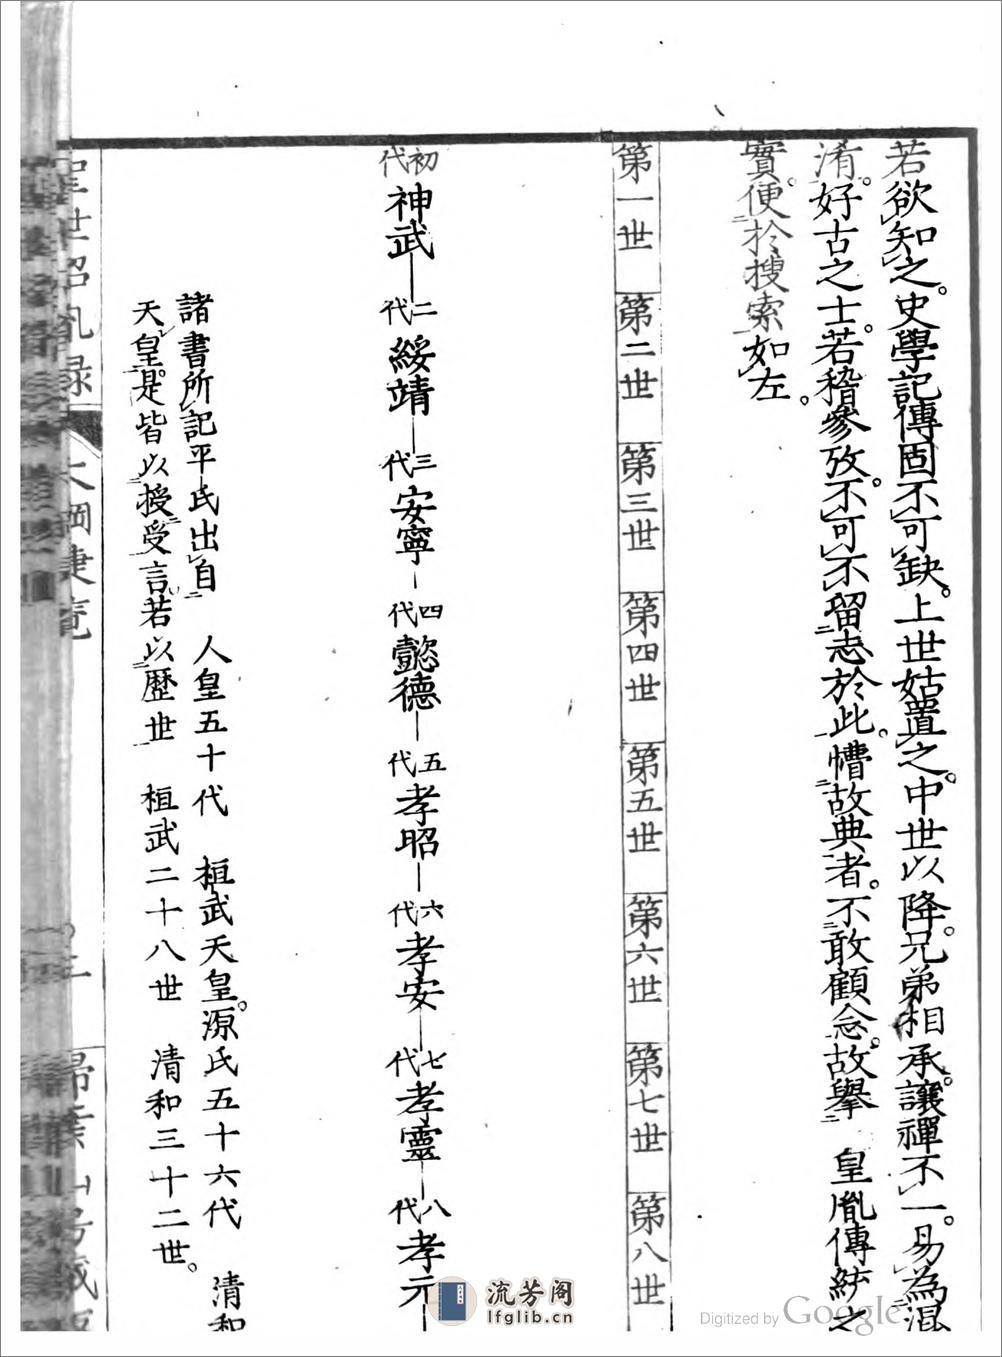 若欲知之。史學記傳固不可缺。上世姑置之。中世以降。兄弟相承。讓禪不一。易為混
淆。好古之士。若稽參攷。不可不留志於此。懵故典者。不敢顧念。故擧 皇胤傳統之
實。便於搜索如左。
第一世 第二世 第三世 第四世 第五世 第六世 第七世 第八世
初代 神武 二代 綏靖 三代 安寧 四代 懿德 五代 孝昭 六代 孝安 七代 孝靈 八代 孝元
諸書所記平氏出自 人皇五十代 桓武天皇。源氏五十六代 清和
天皇。是皆以授受言。若以歷世 桓武二十八世 清和三十二世。
大綱
流芳阁
lfglib.cn
Digitized by Google